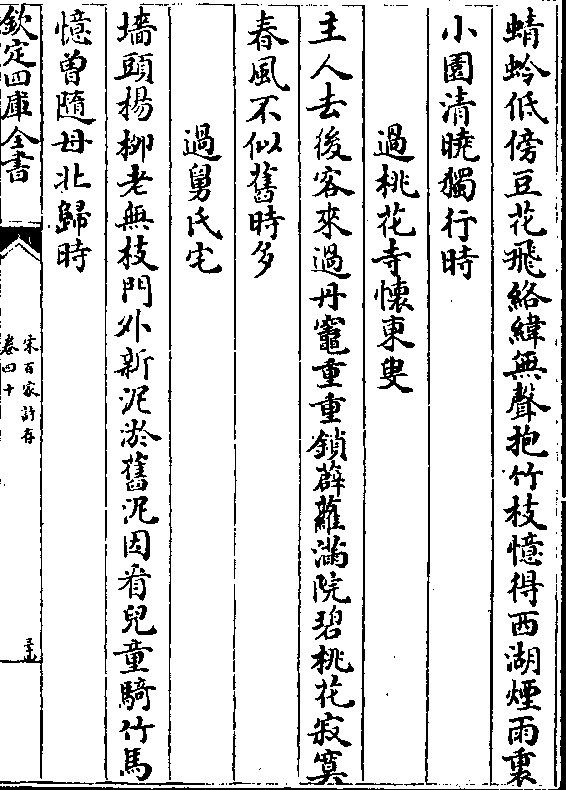 蜻蛉低傍豆花飛絡緯無聲抱竹枝憶得西湖煙雨裏
小園清曉獨行時
過桃花寺懷東叟
主人去後客來過丹竈重重鎖薜蘿滿院碧桃花寂寞
春風不似舊時多
過舅氏宅
墻頭楊柳老無枝門外新泥淤舊泥因看兒童騎竹馬
憶曾隨母北歸時
欽定四庫全書
宋百家詩存
卷四十